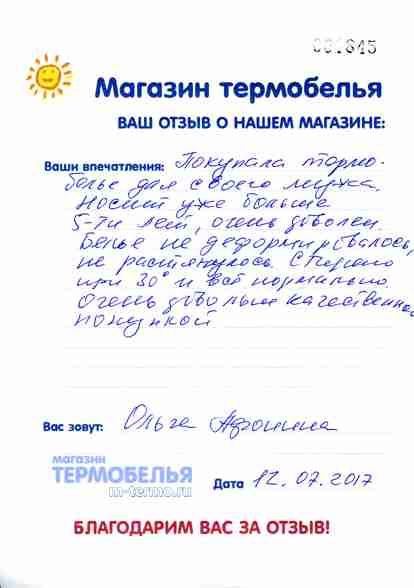 001845
Магазин термобелья
ВАШ ОТЗЫВ О НАШЕМ МАГАЗИНЕ:
Ваши впечатления: Покупала термо-
белье для своего мужа.
Носит уже больше
5-ти лет, очень доволен.
Белье не деформировалось,
не растянулось. Стираю
при 30° и всё нормально.
Очень довольны качественной
покупкой
Вас зовут: Ольга
магазин
ТЕРМОБЕЛЬЯ
m-termo.ru
Дата 12.07.2017
БЛАГОДАРИМ ВАС ЗА ОТЗЫВ!